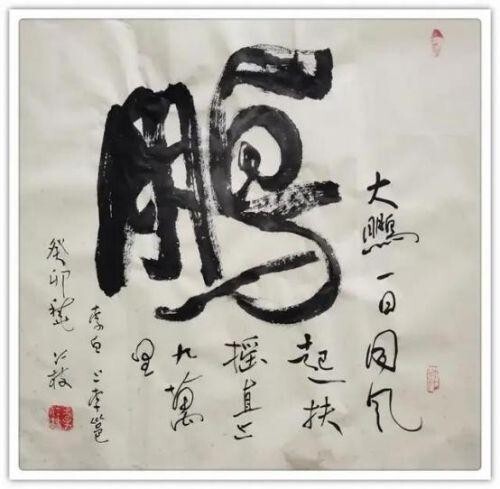 鹏
大鹏一日同风
起扶
摇直上
九萬
里
李白上李邕
癸卯